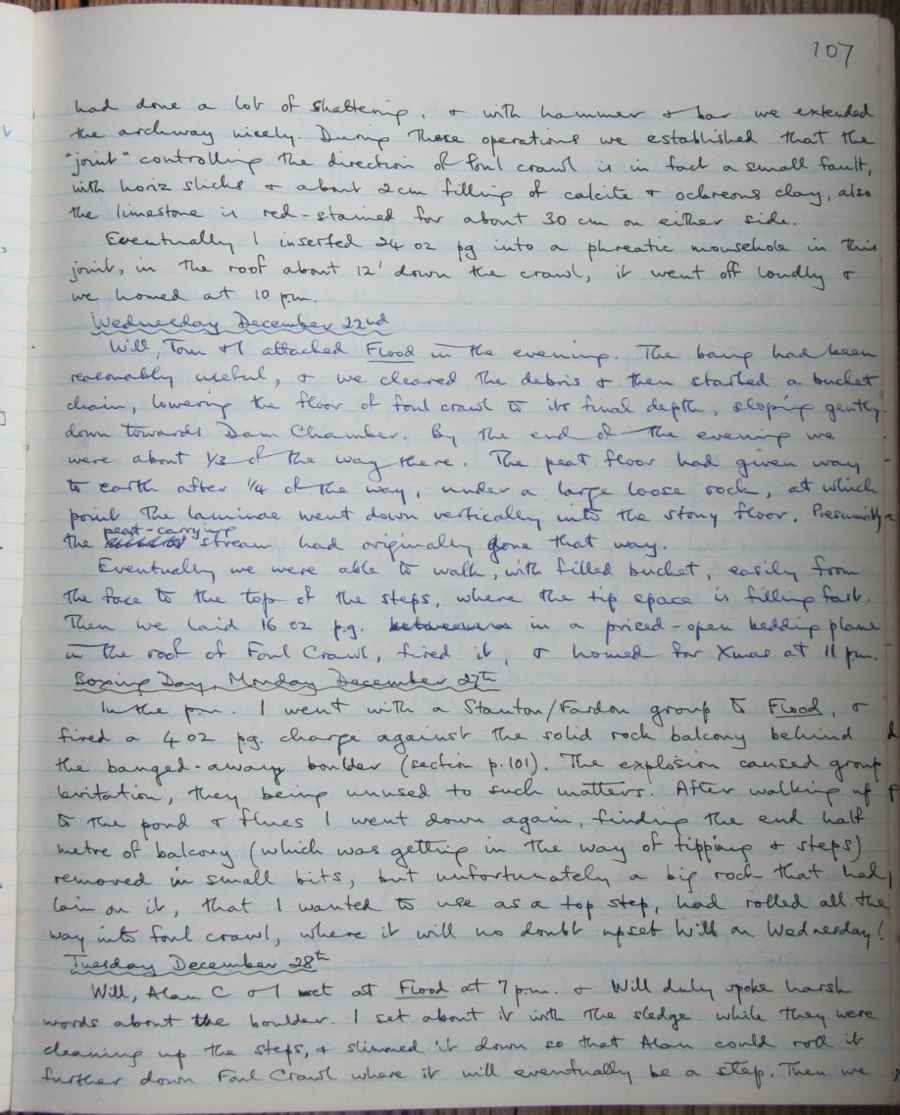 107
had done a lot of shattering, & with hammer & bar we extended
the archway nicely. During these operations we established that the
"joint" controlling the direction of foul crawl is in fact a small fault,
with horiz slicks & about 2cm filling of calcite & ochreous clay, also
the limestone is red-stained for about 30 cm on either side.
Eventually I inserted 24 oz pg into a phreatic mousehole in this
joint, in the roof about 12' down the crawl, it went off loudly &
we homed at 10 pm.
Wednesday December 22nd
Will, Tom & I attacked Flood in the evening. The bang had been
reasonably useful, & we cleared the debris & then started a bucket
chain, lowering the floor of foul crawl to its final depth, sloping gently
down towards Dam Chamber. By the end of the evening we
were about 1/3 of the way there. The peat floor had given way
to earth after 1/4 of the way, under a large loose rock, at which
point the laminae went down vertically into the stony floor. Presumably
peat-carrying
the stream had originally gone that way.
Eventually we were able to walk, with filled bucket, easily from
the face to the top of the steps, where the tip space is filling fast.
Then we laid 16 oz p.g. in a priced-open bedding plane
in the roof of Foul Crawl, fired it, & homed for Xmas at 11 pm.
Boxing Day, Monday December 27th
In the p.m. I went with a Stanton/Fardon group to Flood, &
fired a 4 oz pg. charge against the solid rock balcony behind
the banged-away boulder (section p.101). The explosion caused group
levitation, they being unused to such matters. After walking up
to the pond & flues I went down again, finding the end half
metre of balcony (which was getting in the way of tipping & steps)
removed in small bits, but unfortunately a big rock that had
lain on it, that I wanted to use as a top step, had rolled all the
way into foul crawl, where it will no doubt upset Will on Wednesday!
Tuesday December 28th
Will, Alan C & I met at Flood at 7 pm. & Will duly spoke harsh
words about the boulder. I set about it with the sledge while they were
cleaning up the steps, & slimmed it down so that Alan could roll it
further down Foul Crawl where it will eventually be a step. Then we